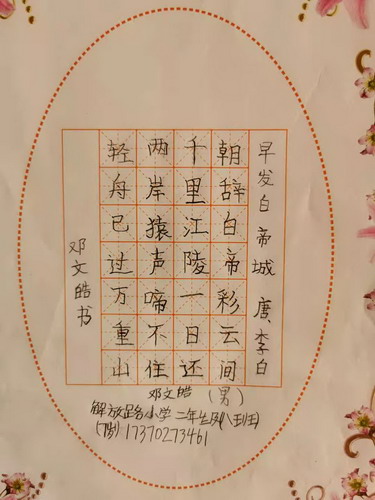 早发白帝城 唐 李白
朝辞白帝彩云间
千里江陵一日还
两岸猿声啼不住
轻舟已过万重山
邓文皓书
邓文皓 (男)
解放路小学二年级(八)班
(7岁) 17370273461